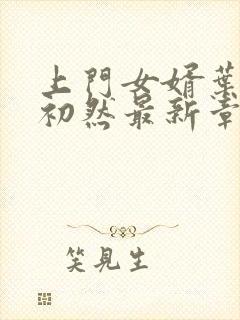 上門女婿葉
初然最新章
笑見生